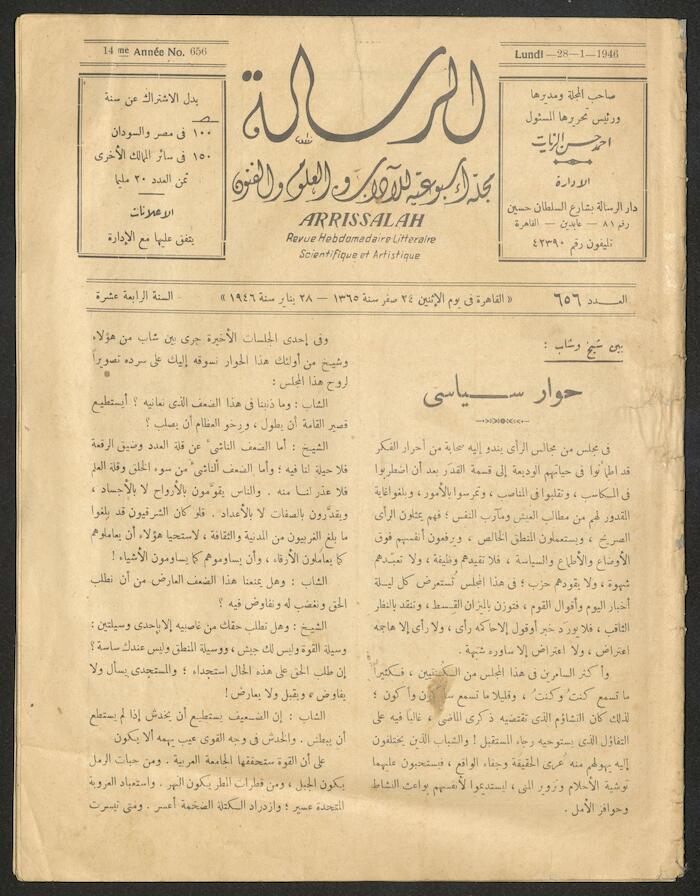 14 me Année No. 656
Lundi —28—1—1946
بدل الاشتراك عن سنة
ص
١٠٠ فى مصر والسودان
١٥٠ فى سائر الممالك الأخرى
ثمن العدد ٢٠ مليما
الاعلانات
يتفق عليها مع الإدارة
الرسالة
مجلة أسبوعية للآداب والعلوم والفنون
ARRISSALAH
Revue Hebdomadaire Litteraire
Scientifique et Artistique
صاحب المجلة ومديرها
ورئيس تحريرها المسئول
احمد حسن الزيات
الادارة
دار الرسالة بشارع السلطان حسين
رقم ٨١ — عابدين — القاهرة
تليفون رقم ٤٢٣٩٠
العـدد ٦٥٦
« القاهرة فى يوم الإثنين ٢٤ صفر سنة ١٣٦٥ — ٢٨ يناير سنة ١٩٤٦ »
السنة الرابعة عشرة
بين شيخ وشاب :
حوار سياسى
فى مجلس من مجالس الرأى يندو إليه صحابة من أحرار الفكر
قد اطمأنوا فى حياتهم الوديعة إلى قسمة القدر بعد أن اضطربوا
فى المكاسب ، وتقلبوا فى المناصب ، وتمرسوا بالأمور ، وبلغوا غاية
المقدور لهم من مطالب العيش ومآرب النفس ؛ فهم يمثلون الرأى
الصريح ، ويستعملون المنطق الخالص ، ويرفعون أنفسهم فوق
الأوضاع والأطماع والسياسة ، فلا تقيدهم وظيفة ، ولا تعبّدهم
شهوة ، ولا يقودهم حزب ؛ فى هذا المجلس تُستعرض كل ليلة
أخبار اليوم وأقوال القوم ، فتوزن بالميزان القسط ، وتنقد بالنظر
الثاقب ، فلا يورَد خبر أو قول إلا حاكه رأى ، ولا رأى إلا هاجمه
اعتراض ، ولا اعتراض إلا ساوره شبهة .
وأكثر السامرين فى هذا المجلس من ، فكثيراً
ما تسمع كنتُ وكنتُ ، وقليلا ما تسمع سأكون وأكون ؛
لذلك كان التشاؤم الذى تقتضيه ذكرى الماضى ، غالباً فيه على
التفاؤل الذى يستوحيه رجاء المستقبل ! والشباب الذين يختلفون
إليه يهولهم منه عُرى الحقيقة وجفاء الواقع ، فيستحبون عليهما
توشية الأحلام وتزوير المنى ، ليستديموا لأنفسهم بواعث النشاط
وحوافز الأمل .
وفى إحدى الجلسات الأخيرة جرى بين شاب من هؤلاء
وشيخ من أولئك هذا الحوار نسوقه إليك على سرده تصويراً
لروح هذا المجلس :
الشاب : وما ذنبنا فى هذا الضعف الذى نعانيه ؟ أيستطيع
قصير القامة أن يطول ، ورخو العظام أن يصلب ؟
الشيخ : أما الضعف الناشئ عن قلة العدد وضيق الرقعة
فلا حيلة لنا فيه ؛ وأما الضعف الناشئ من سوء الخلق وقلة العلم
فلا عذر لنا منه . والناس يقوَّمون بالأرواح لا بالأجساد ،
ويقدَّرون بالصفات لا بالأعداد . فلو كان الشرقيون قد بلغوا
ما بلغ الغربيون من المدنية والثقافة ، لاستحيا هؤلاء أن يعاملوهم
كما يعاملون الأرقاء ، وأن يساوموهم كما يساومون الأشياء !
الشاب : وهل يمنعنا هذا الضعف العارض من أن نطلب
الحق ونغضب له ونفاوض فيه ؟
الشيخ : وهل تطلب حقك من غاصبيه إلا بإحدى وسيلتين :
وسيلة القوة وليس لك جيش ، ووسيلة المنطق وليس عندك ساسة ؟
إن طلب الحق على هذه الحال استجداء ؛ والمستجدى يسأل ولا
يفاوض ، ويقبل ولا يعارض !
الشاب : إن الضعيف يستطيع أن يخدش إذا لم يستطع
أن يبطش . والخدش فى وجه القوى عيب يهمه ألا يكون
على أن القوة ستحققها الجامعة العربية . ومن حبات الرمل
يكون الجبل ، ومن قطرات المطر يكون النهر . واستعباد العروبة
المتحدة عسير ؛ وازدراد الكتلة الضخمة أعسر . ومتى تيسرت